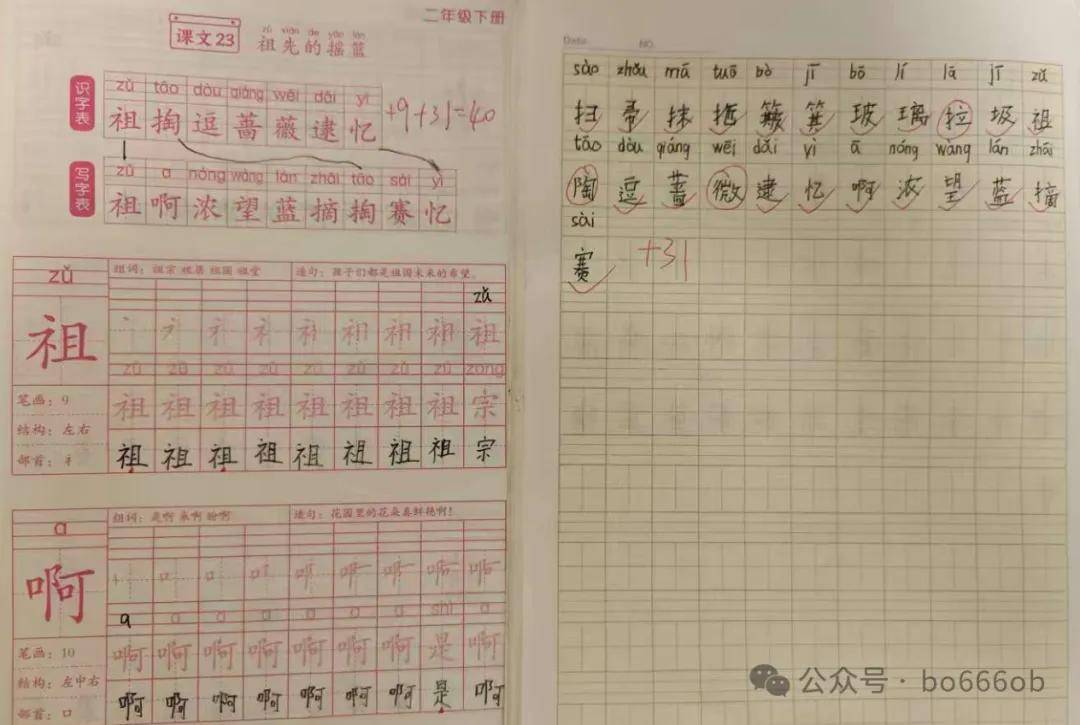 二年级下册
课文23
zǔ xiān de yáo lán
祖先的摇篮
识字表
zǔ tāo dòu qiáng wēi dǎi yì
祖 掏 逗 蔷 薇 逮 忆
+9+31=40
写字表
zǔ a nóng wàng lán zhāi tāo sài yì
祖 啊 浓 望 蓝 摘 掏 赛 忆
zǔ
组词：祖宗 祖籍 祖国 祖堂
造句：孩子们都是祖国未来的希望。
zǔ
祖
祖
zǔ zǔ zǔ zǔ zǔ zǔ zǔ zǔ zong
笔画：9
祖 祖 祖 祖 祖 祖 祖 祖 宗
结构：左右
部首：礻
祖 祖 祖 祖 祖 祖 祖 祖 宗
a
组词：是啊 来啊 盼啊
造句：花园里的花朵真鲜艳啊！
啊
a a a a a a a shì a
笔画：10
啊 啊 啊 啊 啊 啊 啊 是 啊
结构：左中右
部首：口
啊 啊 啊 啊 啊 啊 啊 是 啊
Date NO.
sào zhǒu mā tuō bò jī bō lí lā jī zǔ
扫 帚 抹 拖 簸 箕 玻 璃 拉 圾 祖
tāo dòu qiáng wēi dǎi yì ā nóng wàng lán zhāi
陶 逗 蔷 微 逮 忆 啊 浓 望 蓝 摘
sài
赛
+31
公众号 · bo666ob